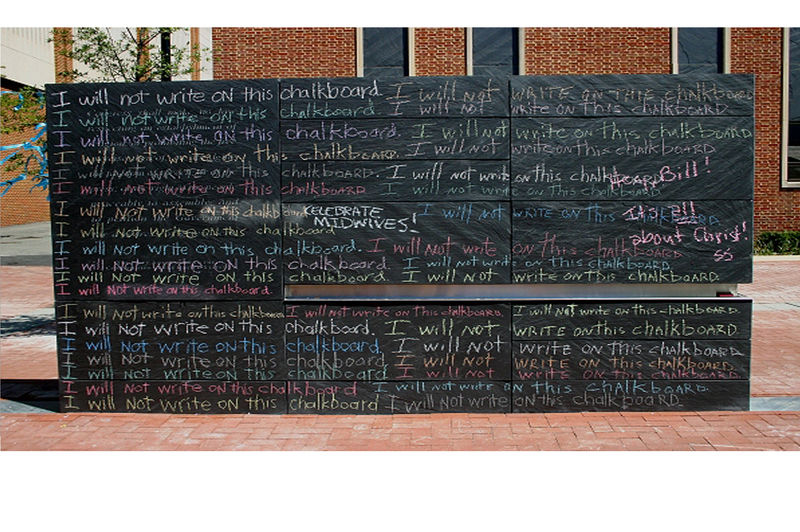 I will not write on this chalkboard. I will not WRITE ON THIS CHALKBOARD
I will not write on this chalkboard. I will not write on this chalkboard.
I will not write on this chalkboard. I will not write on this chalkboard.
I will not write on this chalkboard. I will not write on this chalkboard.
I will not write on this chalkboard. I will not write on this chalkboard.
Bill!
I will not write on this chalkboard. I will not write on this chalkboard.
I will not write on this chalkboard
CELEBRATE
MIDWIVES!
I will not write on this chalkboard.
It's all
about Christ!
ss
I will not write on this chalkboard
I will not write on this chalkboard. I will not write on this chalkboard
I will not write on this chalkboard. I will not write on this chalkboard.
I will not write on this chalkboard. I will not write on this chalkboard.
I will not write on this chalkboard.
I will not write on this chalkboard I will not write on this chalkboard. I will not write on this chalkboard.
I will not write on this chalkboard. I will not write on this chalkboard.
I will not write on this chalkboard. I will not write on this chalkboard.
I will not write on this chalkboard I will not write on this chalkboard.
I will not write on this chalkboard I will not write on this chalkboard.
I will not write on this chalkboard I will not write on this chalkboard.
I will not write on this chalkboard I will not write on this chalkboard.